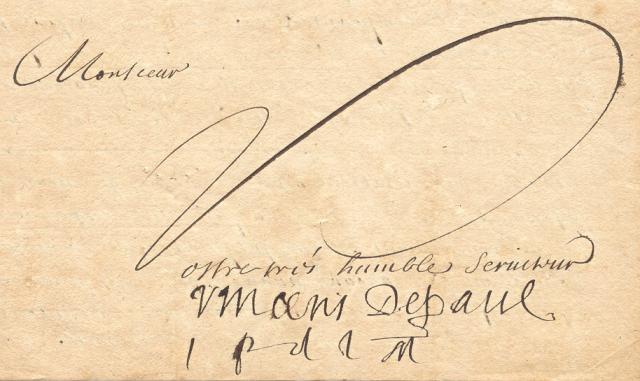 Monsieur
Vostre très humble Seruiteur
Vincens Depaul
i p d l M